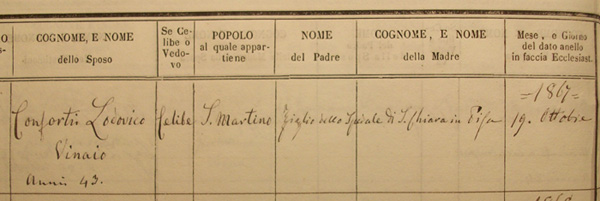 COGNOME, E NOME
dello Sposo
Se Ce-
libe o
Vedo-
vo
POPOLO
al quale appar-
tiene
NOME
del Padre
COGNOME, E NOME
della Madre
Mese, e Giorno
del dato anello
in faccia Ecclesiast.
=1867=
Conforti Lodovico
Celibe
S. Martino
Figlio dello Spedale di S. Chiara in Pisa
19. Ottobre
Vinaio
Anni 43.